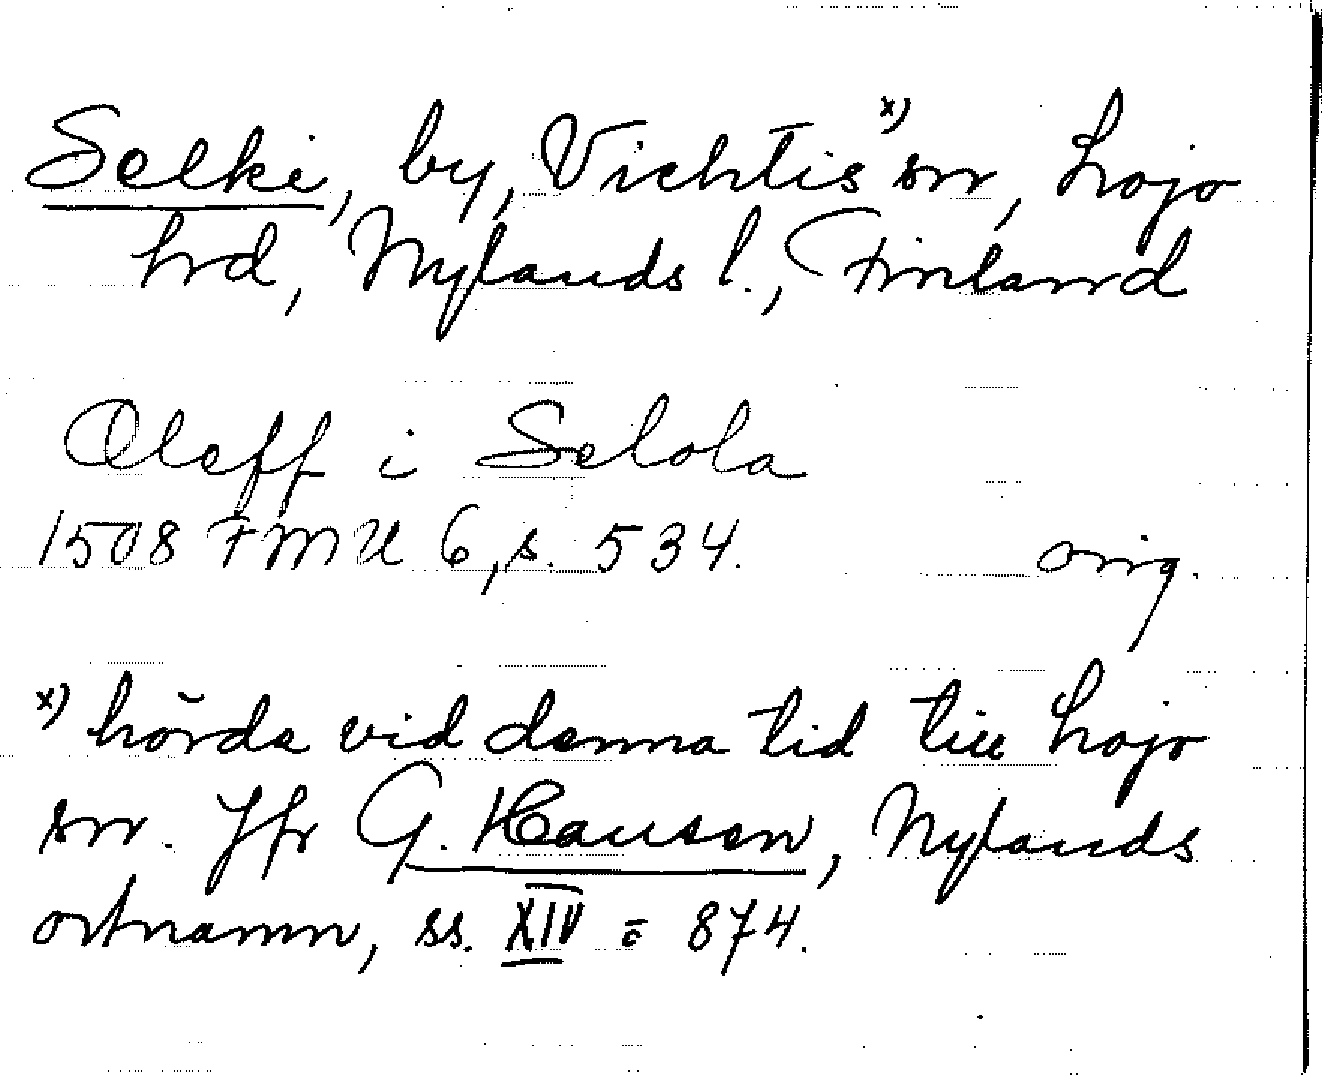 Selki, by, Vichtis x) sn, Lojo
hrd, Nylands l., Finland
Oleff i Selola
1508 FMU 6, s. 534. orig.
x) hörde vid denna tid till Lojo
sn. Jfr G. Hausen, Nylands
ortnamn, ss. XIV o 874.